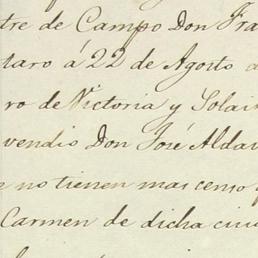 tre de Campo Don Fra
taro á 22 de Agosto
ro de Victoria y Solai
vendio Don José Aldav
e no tienen mas censo
Carmen de dicha ciu